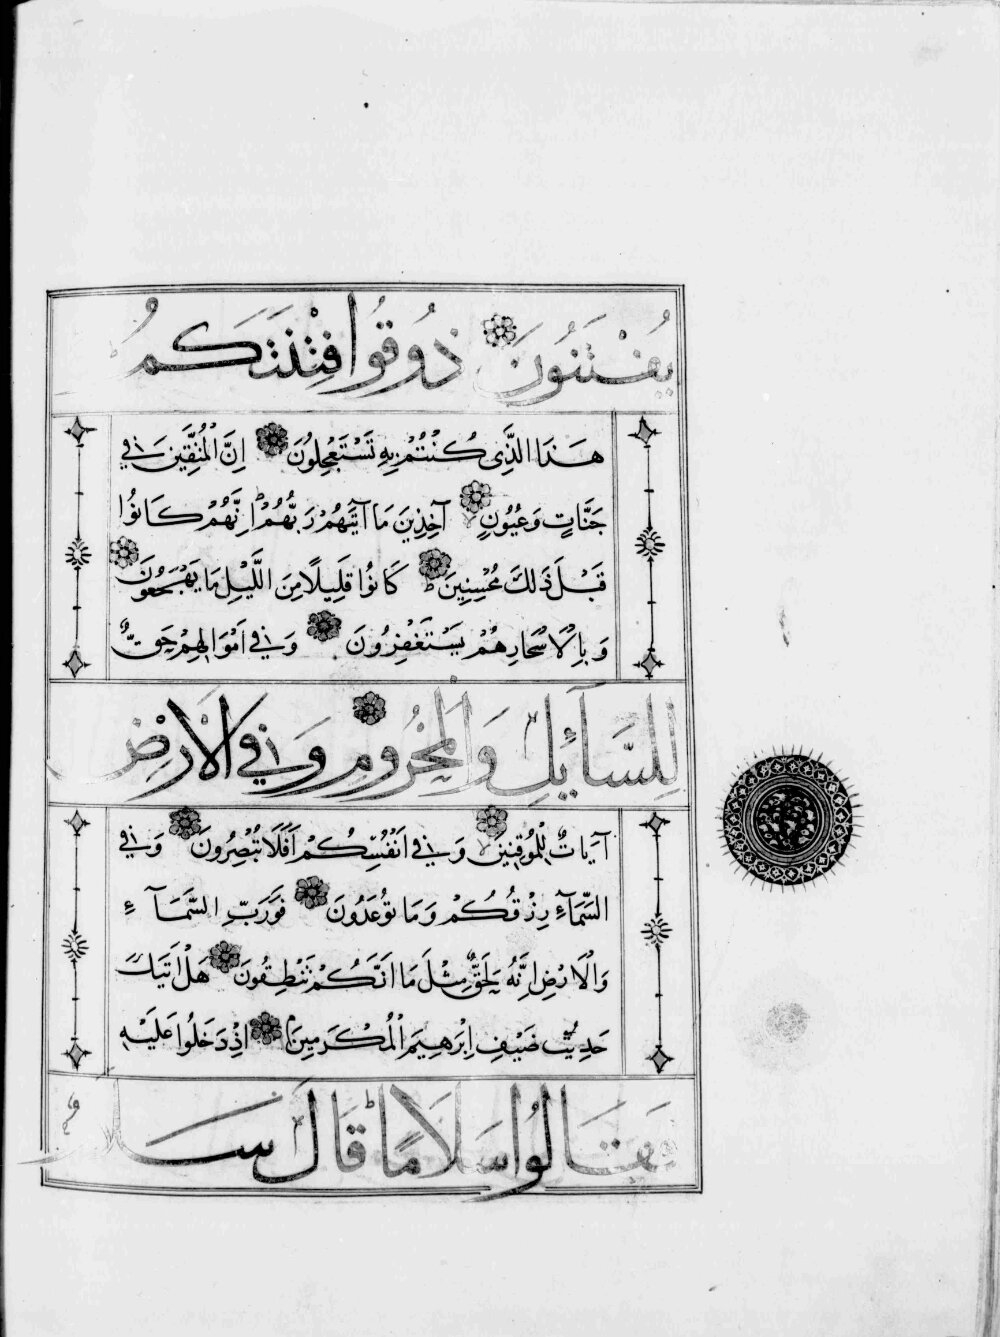 يُفْتَنُونَ ذُوقُوا فِتْنَتَكُمْ
هَذَا الَّذِى كُنْتُمْ بِهِ تَسْتَعْجِلُونَ اِنَّ الْمُتَّقِينَ فِي
جَنَّاتٍ وَعُيُونٍ آخِذِينَ مَا آتَيهُمْ رَبُّهُمْ اِنَّهُمْ كَانُوا
قَبْلَ ذَلِكَ مُحْسِنِينَ كَانُوا قَلِيلًا مِنَ اللَّيْلِ مَا يَهْجَعُونَ
وَبِالْاَسْحَارِ هُمْ يَسْتَغْفِرُونَ وَفِي اَمْوَالِهِمْ حَقٌّ
لِلسَّآئِلِ وَالْمَحْرُومِ وَفِي الْاَرْضِ
آيَاتٌ لِلْمُوقِنِينَ وَفِي اَنْفُسِكُمْ اَفَلَا تُبْصِرُونَ وَفِي
السَّمَآءِ رِزْقُكُمْ وَمَا تُوعَدُونَ فَوَرَبِّ السَّمَآءِ
وَالْاَرْضِ اِنَّهُ لَحَقٌّ مِثْلَ مَا اَنَّكُمْ تَنْطِقُونَ هَلْ اَتَيكَ
حَدِيثُ ضَيْفِ اِبْرَهِيمَ الْمُكْرَمِينَ اِذْ دَخَلُوا عَلَيْهِ
فَقَالُوا سَلَامًا قَالَ سَلَامٌ